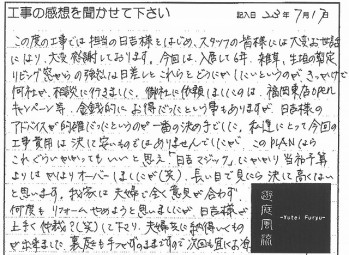 工事の感想を聞かせて下さい
記入日 23年7月17日
この度の工事では担当の日吉様をはじめ、スタッフの皆様には大変お世話
になり、大変感謝しております。今回は、入居して6年、雑草、生垣の剪定
リビング窓からの強い日差しとこれらをどうにかしたいというのが、きっかけで
何社か、相談に行きました。御社に依頼しましたのは、福岡東店OPEN
キャンペーン等、金銭的にお得だったという事もありますが、日吉様の
アドバイスが的確だったというのが一番の決め手でした。私達にとって今回の
工事費用は決して安いものではありませんでしたが、このPLANなら
これぐらいかかってもいいと思え「日吉マジック」にかかり当初予算
よりはかなりオーバーしましたが(笑)、長い目で見たら決して高くはない
と思います。我家は夫婦で全く意見が合わず
何度もリフォームやめようと思いましたが、日吉様が
上手く仲裁?(笑)して下さり、夫婦共に納得いくもの
が出来ました。裏庭も手つかずのままですので次回も宜しくお
遊庭風流
-Yutei Furyu-